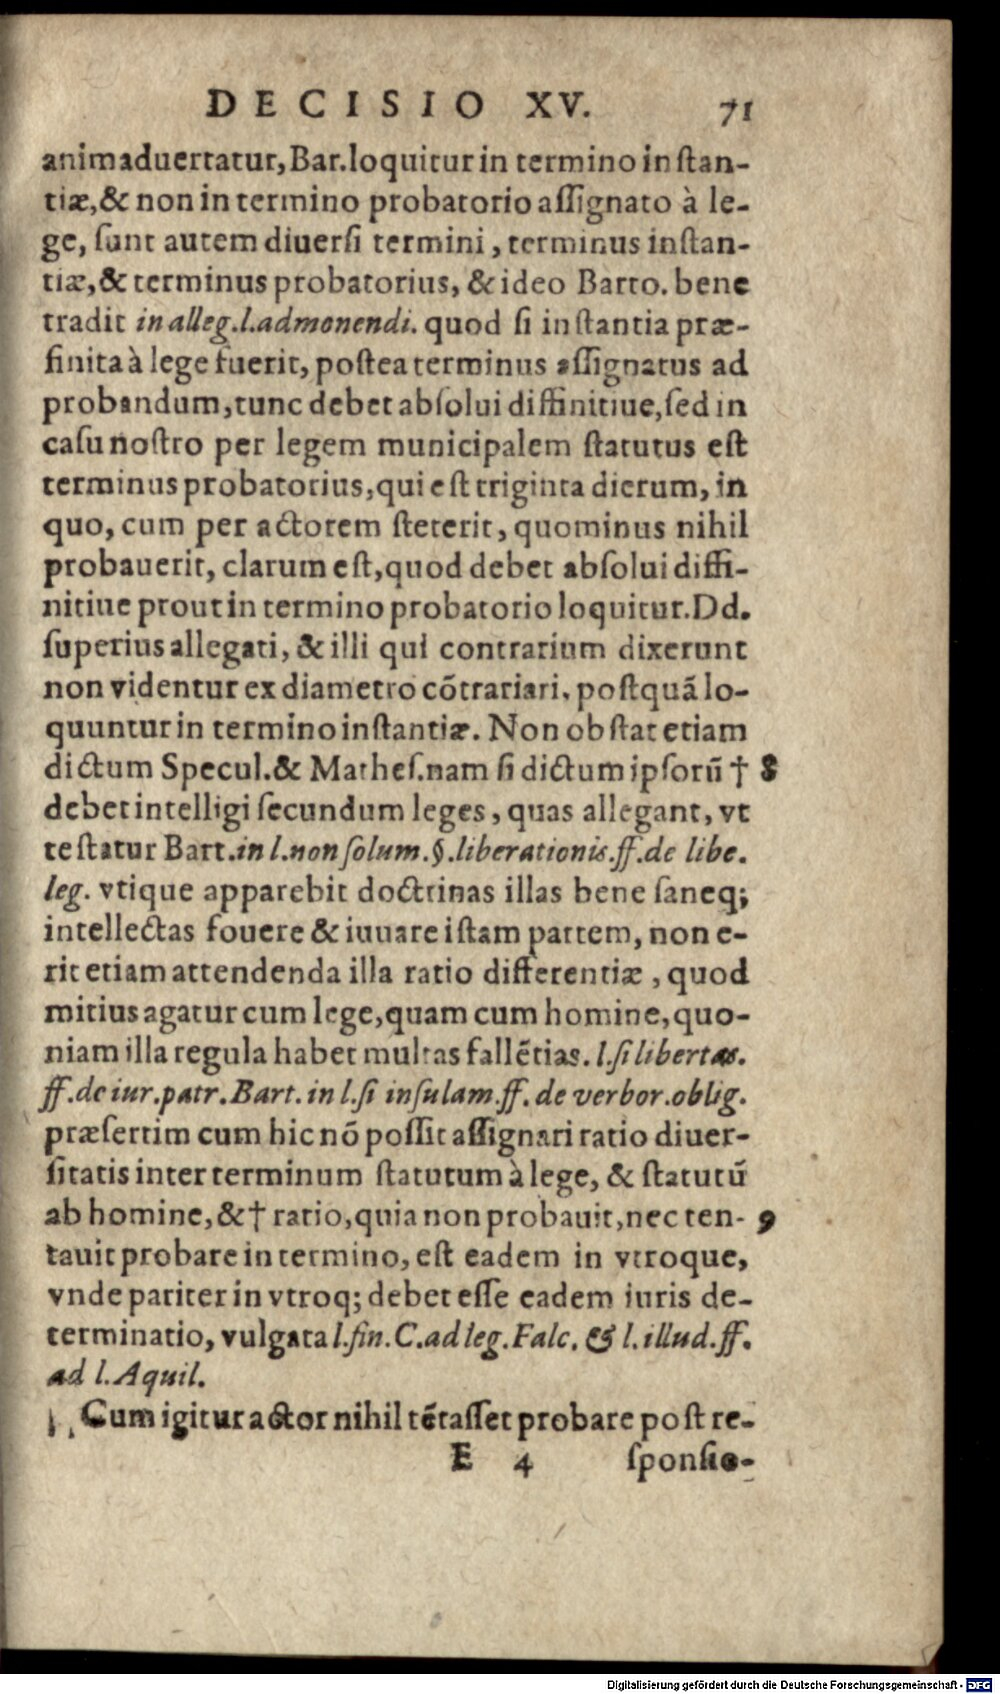 DECISIO XV. 71
animaduertatur, Bar. loquitur in termino instan-
tiæ, & non in termino probatorio assignato à le-
ge, sunt autem diuersi termini, terminus instan-
tiæ, & terminus probatorius, & ideo Barto. bene
tradit in alleg. l. admonendi. quod si instantia præ-
finita à lege fuerit, postea terminus assignatus ad
probandum, tunc debet absolui diffinitiue, sed in
casu nostro per legem municipalem statutus est
terminus probatorius, qui est triginta dierum, in
quo, cum per actorem steterit, quominus nihil
probauerit, clarum est, quod debet absolui diffi-
nitiue prout in termino probatorio loquitur. Dd.
superius allegati, & illi qui contrarium dixerunt
non videntur ex diametro cōtrariari, postquā lo-
quuntur in termino instantiæ. Non obstat etiam
dictum Specul. & Mathes. nam si dictum ipsorū † 8
debet intelligi secundum leges, quas allegant, vt
testatur Bart. in l. non solum. §. liberationis. ff. de libe.
leg. vtique apparebit doctrinas illas bene saneq;
intellectas fouere & iuuare istam partem, non e-
rit etiam attendenda illa ratio differentiæ, quod
mitius agatur cum lege, quam cum homine, quo-
niam illa regula habet multas fallētias. l. si libertas.
ff. de iur. patr. Bart. in l. si insulam. ff. de verbor. oblig.
præsertim cum hic nō possit assignari ratio diuer-
sitatis inter terminum statutum à lege, & statutū
ab homine, & † ratio, quia non probauit, nec ten- 9
tauit probare in termino, est eadem in vtroque,
vnde pariter in vtroq; debet esse eadem iuris de-
terminatio, vulgata l. fin. C. ad leg. Falc. & l. illud. ff.
ad l. Aquil.
Cum igitur actor nihil tētasset probare post re-
E 4 sponsio-
Digitalisierung gefördert durch die Deutsche Forschungsgemeinschaft - DFG